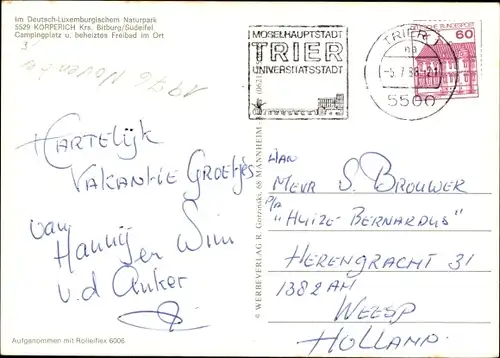 Im Deutsch-Luxemburgischem Naturpark
5529 KÖRPERICH Krs. Bitburg/Südeifel
Campingplatz u. beheiztes Freibad im Ort
1976 November
Hartelijk
Vakantie Groetjes
van
Hannij en Wim
v.d Anker
Aufgenommen mit Rolleiflex 6006
© WERBEVERLAG R. Gorzinski, 68 MANNHEIM
MOSELHAUPTSTADT
TRIER
UNIVERSITÄTSSTADT
TRIER 1
5500
BUNDESPOST
60
Aan
Mevr S. Brouwer
p/a
"Huize Bernardus"
Herengracht 31
1382 AM
Weesp
Holland